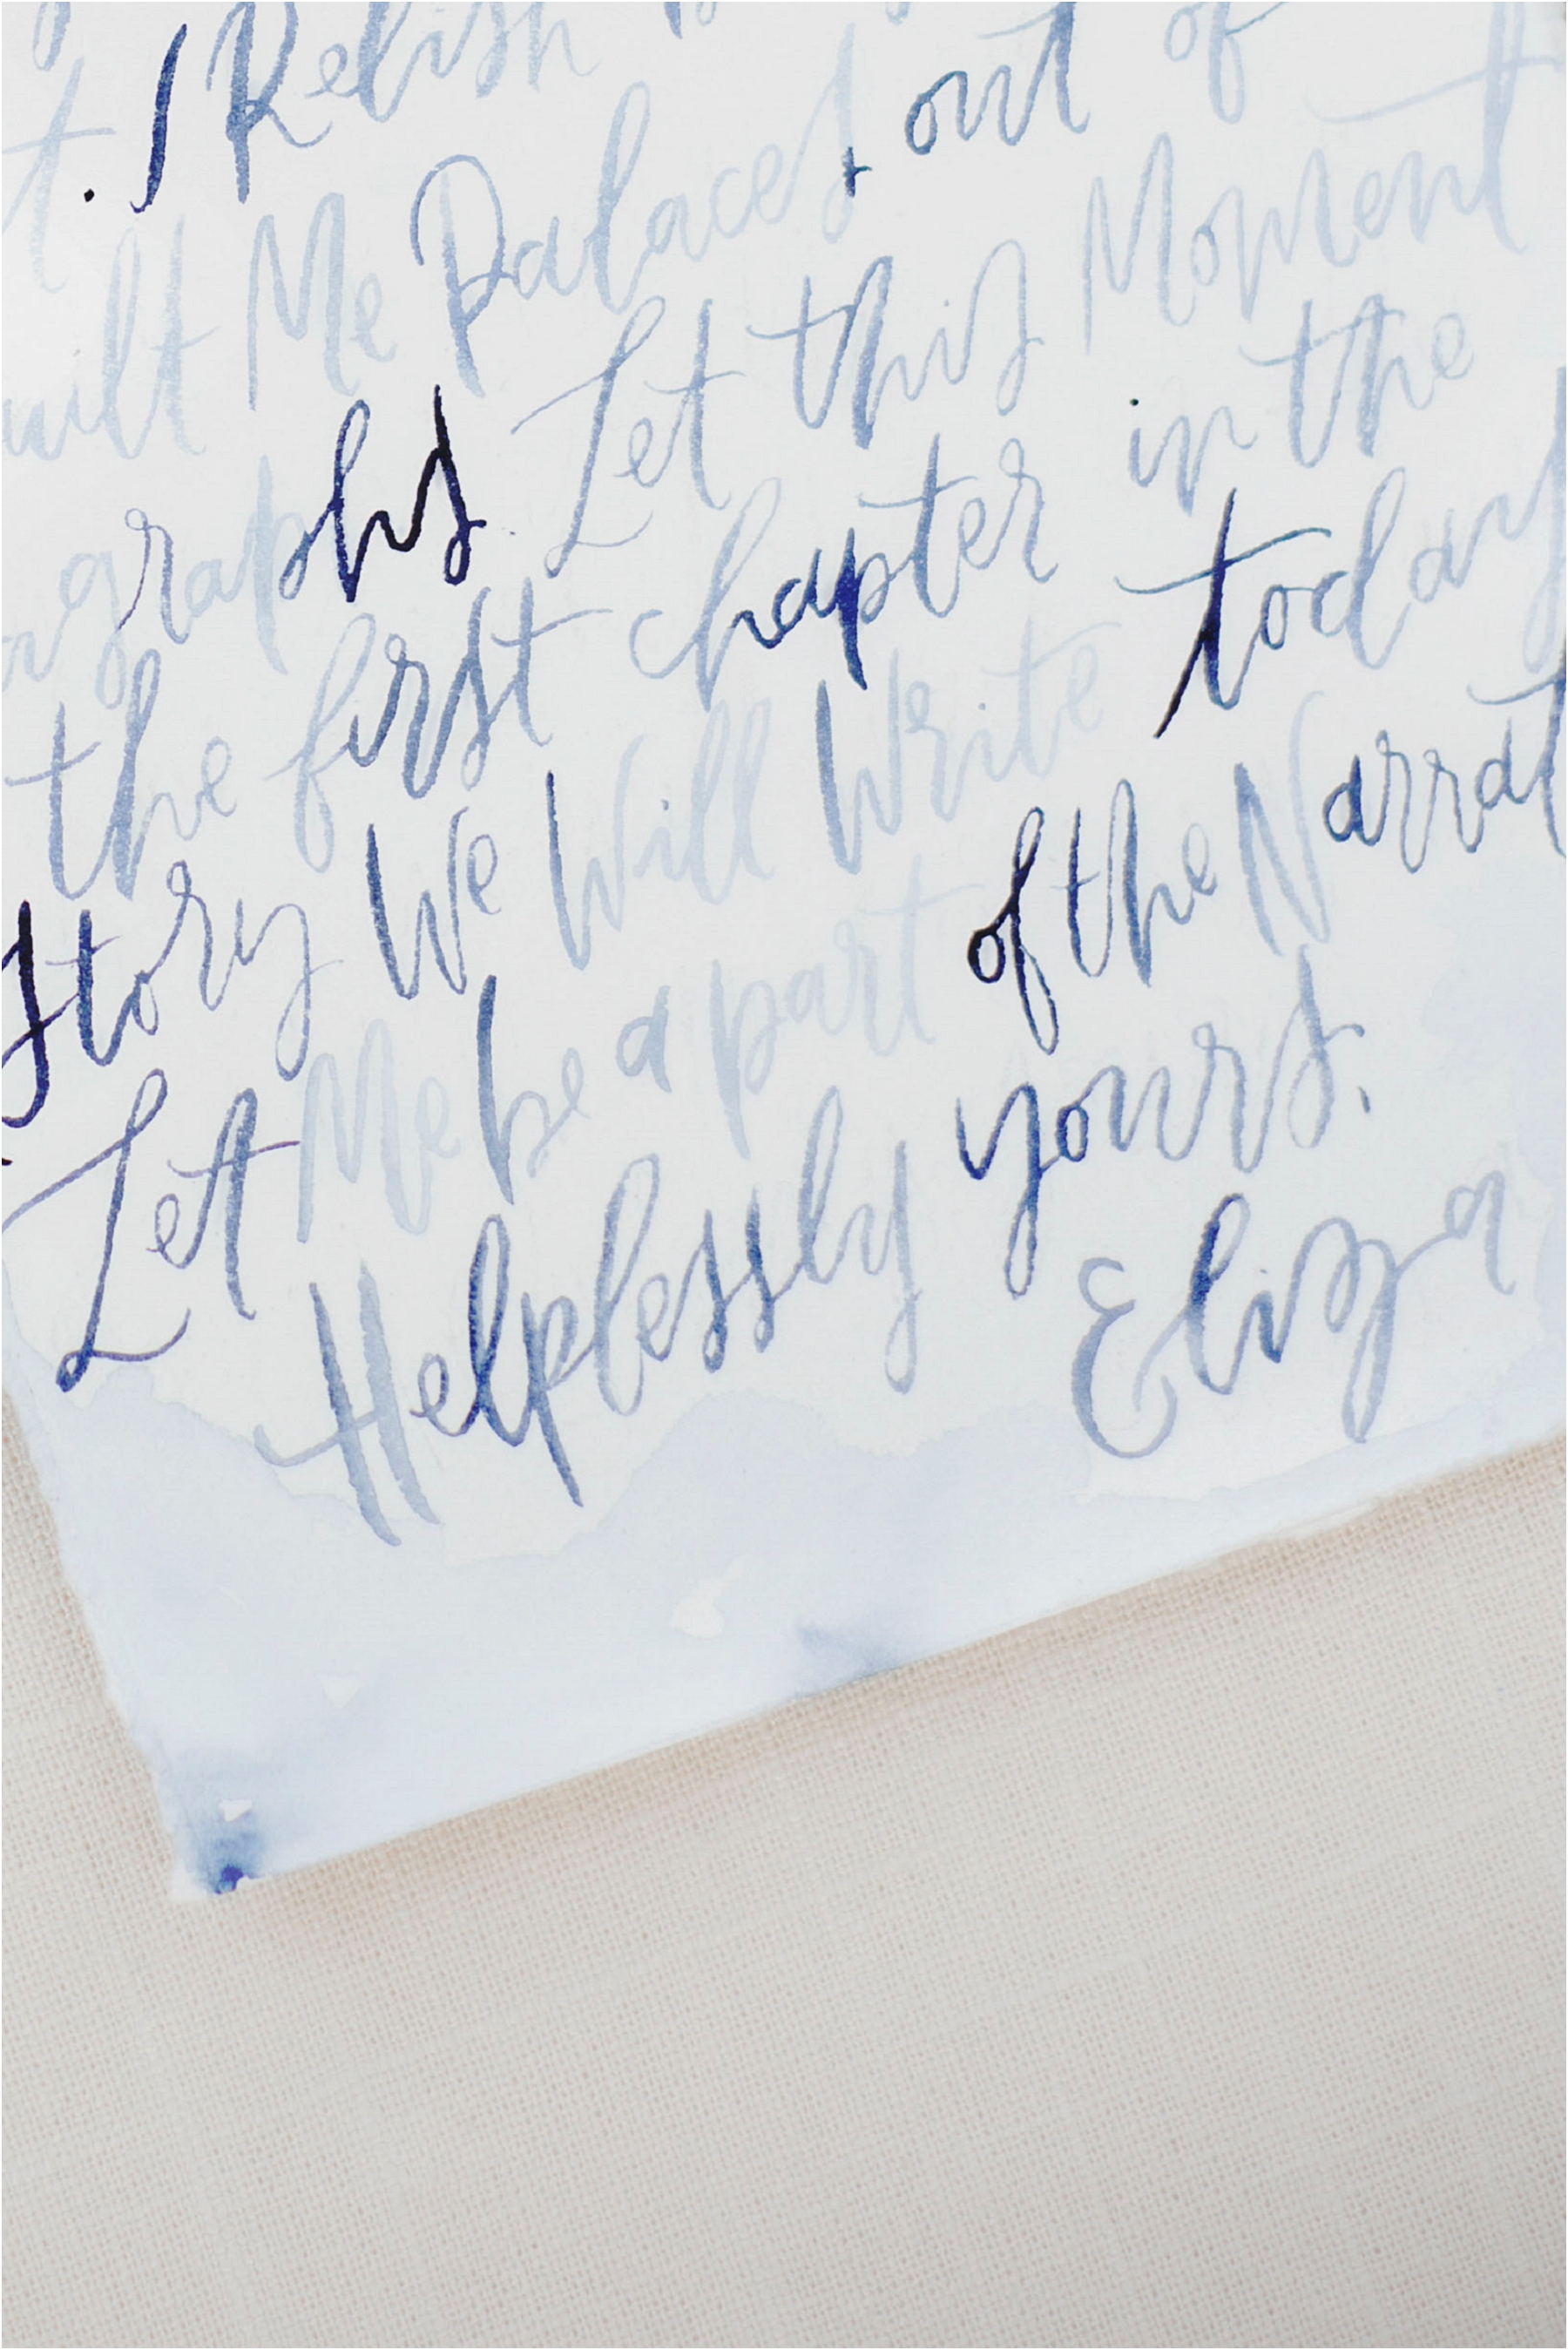 t. I Relish
uilt Me Palaces out of
agraphs. Let this Moment
the first chapter in the
Story We Will Write today
Let Me be a part of the Narrat
Helplessly yours,
Eliza